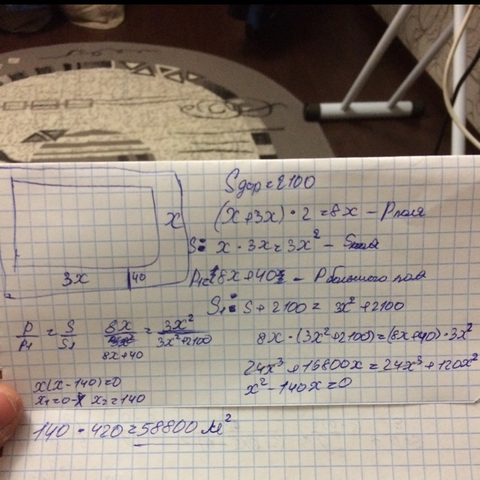 Sдор=2100
x
(x+3x)·2=8x – Pполя
S: x·3x=3x² – Sполя
3x 40
P₁=8x+40 – Pбольшого поля
S₁: S+2100=3x²+2100
P/P₁=S/S₁ 8x/8x+40=3x²/3x²+2100
8x·(3x²+2100)=(8x+40)·3x²
24x³+16800x=24x³+120x²
x(x-140)=0
x²-140x=0
x₁=0 x₂=140
140·420=58800 м²